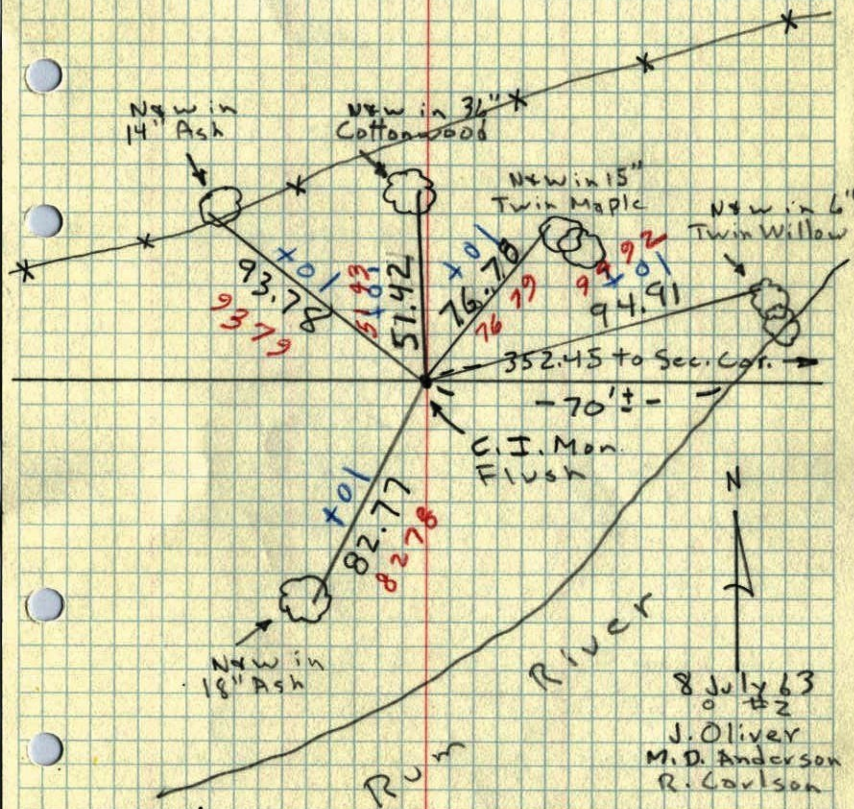 N&W in
14" Ash
N&W in 36"
Cottonwood
N&W in 15"
Twin Maple
N&W in 6"
Twin Willow
+01
93.78
93 79
+01
51.42
+01
76.78
76 79
+01
94.91
94 92
352.45 to Sec. Cor.
-70'±-
C.I. Mon.
Flush
+01
82.77
82 78
N&W in
18" Ash
N
Rum River
8 July 63
#2
J. Oliver
M.D. Anderson
R. Carlson